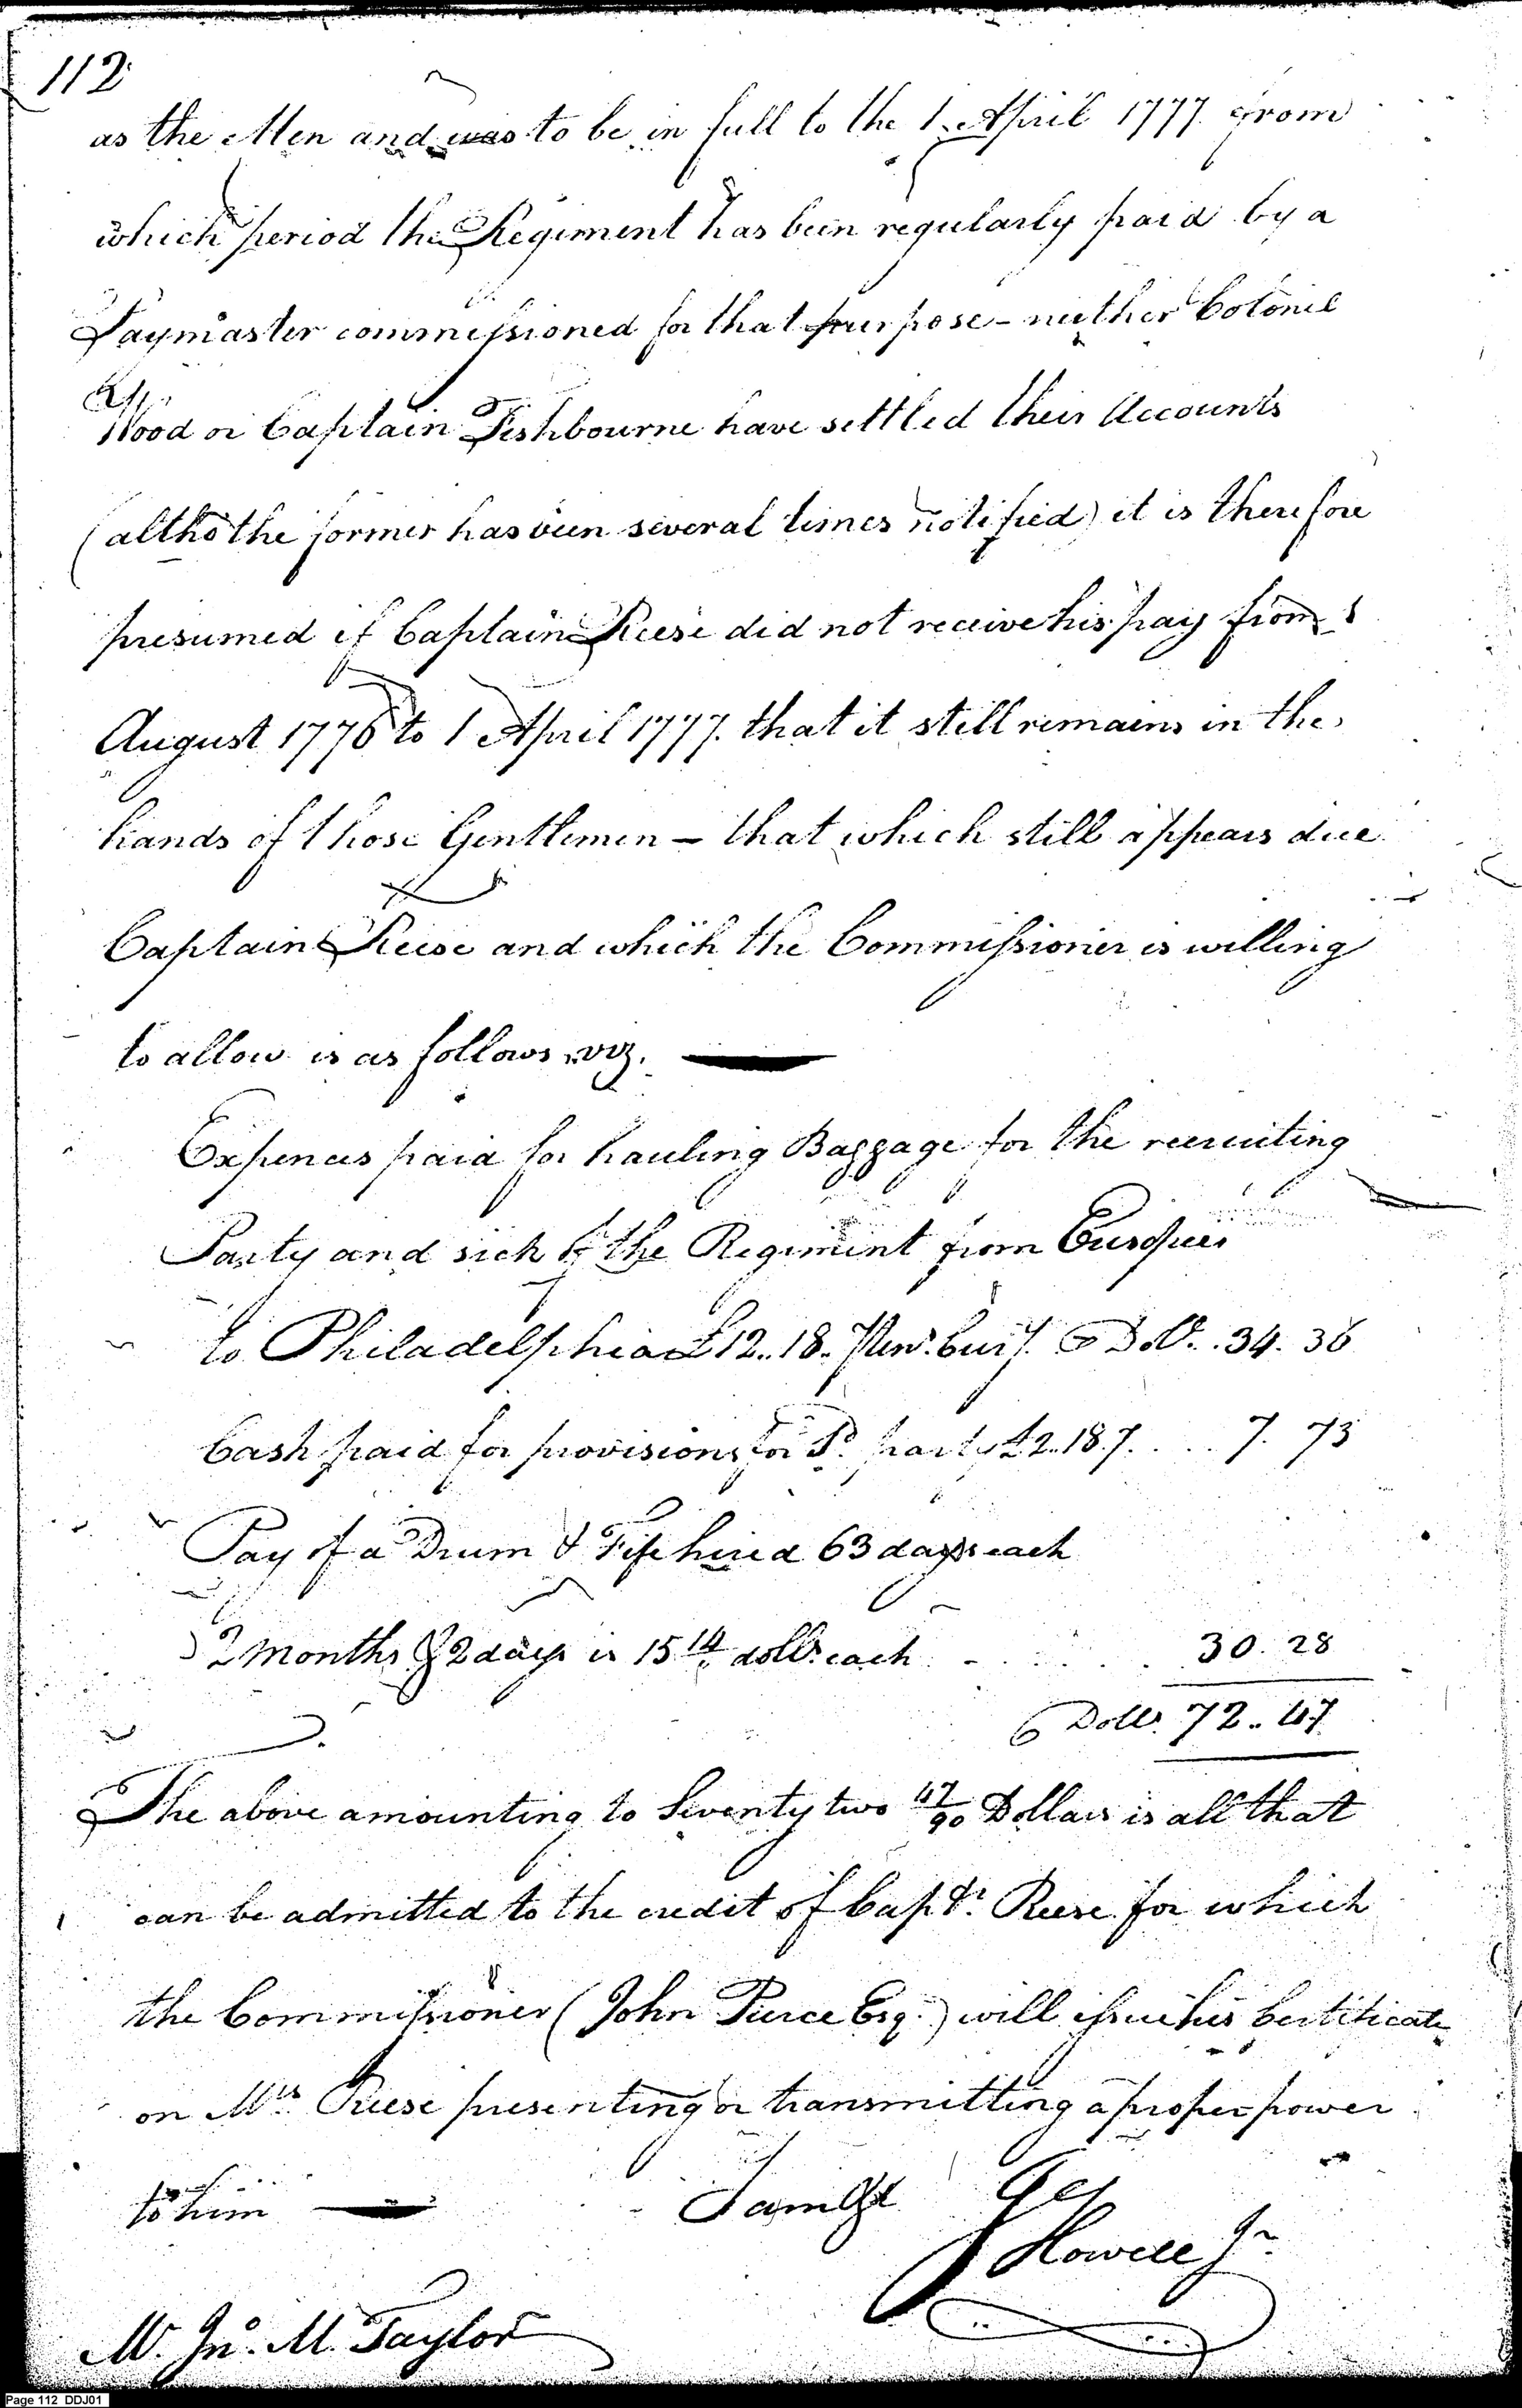 112
as the Men and was to be in full to the 1. April 1777. from
which period the Regiment has been regularly paid by a
Paymaster commissioned for that purpose - neither Colonel
Wood or Captain Fishbourne have settled their Accounts
(altho the former has been several times notified) it is therefore
presumed if Captain Reese did not receive his pay from
August 1776 to 1 April 1777. that it still remains in the
hands of those Gentlemen - that which still appears due
Captain Reese and which the Commissioner is willing
to allow is as follows viz.
Expences paid for hauling Baggage for the recruiting
Party and sick of the Regiment from
to Philadelphia £12..18. Doll. 34. 36
Cash paid for provisions for Sd. party £2.18.7. . . . 7. 73
Pay of a Drum & Fife hired 63 days each
2 Months & 2 days is 15 14 dolls. each . - . . . . . 30. 28
Dolls. 72. 47
The above amounting to Seventy two 47/90 Dollars is all that
can be admitted to the credit of Capt. Reese for which
the Commissioner (John Pierce Esq.) will issue his Certificate
on Mrs. Reese presenting or transmitting a proper power
to him
I am Sr
J Howell Jr.
Mr. Jno. M. Taylor
Page 112 DDJ01